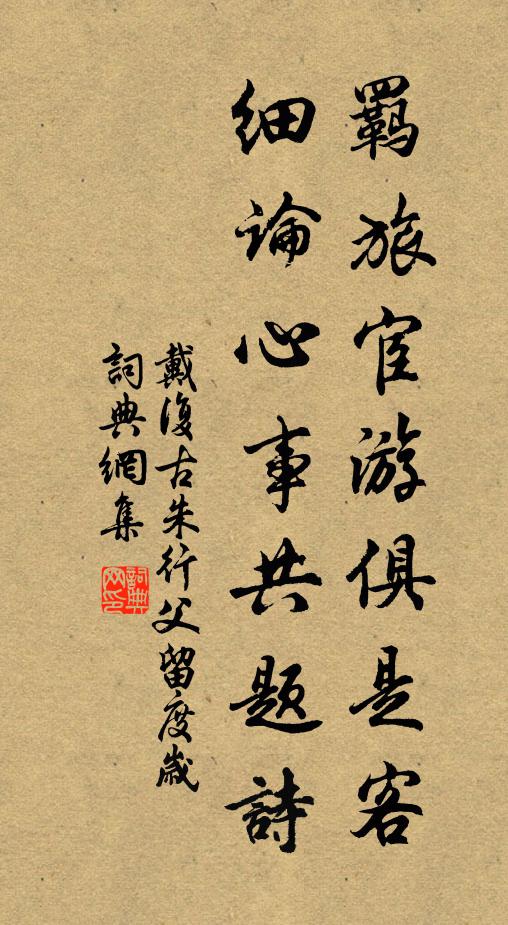 羈旅宦游俱是客
細論心事共题詩
戴復古朱行父留度歲
詞典網集
詞典网印